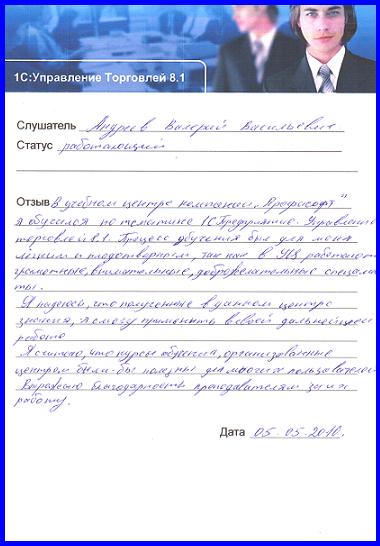 1С:Управление Торговлей 8.1
Слушатель Андреев Валерий Васильевич
Статус работающий
Отзыв В учебном центре компании "Профисофт"
я обучался по тематике 1С Предприятие. Управление
торговлей 8.1. Процесс обучения был для меня
лёгким и плодотворным, так как в УЦ работают
грамотные, внимательные, доброжелательные специалис
ты.
Я надеюсь, что полученные в данном центре
знания, я смогу применить в своей дальнейшей
работе
Я считаю, что курсы обучения, организованные
центром были бы полезны для многих пользователей
Выражаю благодарность преподавателям за их
работу.
Дата 05.05.2010.